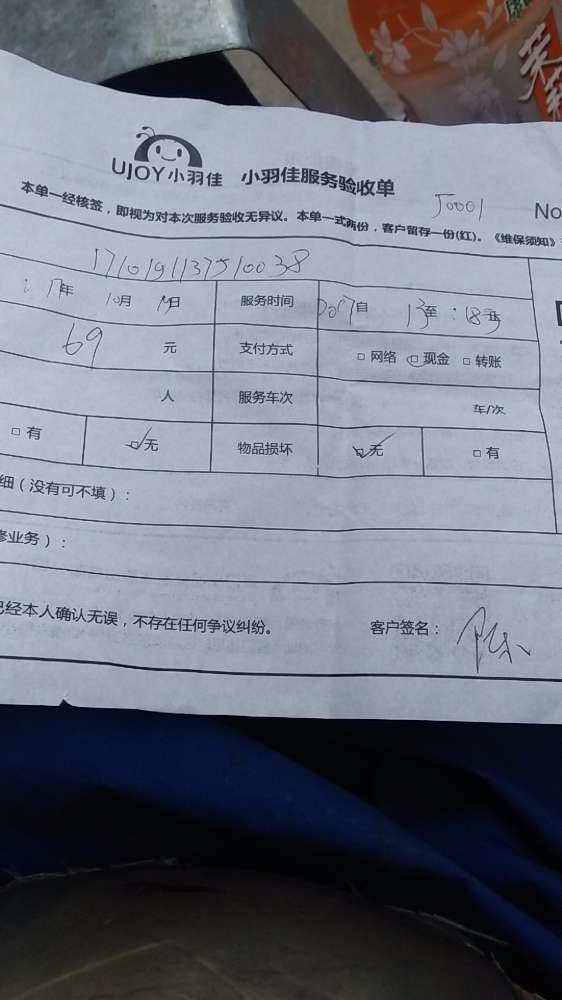 茉莉
UJOY小羽佳 小羽佳服务验收单
J0001 No
本单一经核签，即视为对本次服务验收无异议。本单一式两份，客户留存一份(红)。《维保须知》
1710191137510038
17年 10月 19日 服务时间 自 13至:18
69 元 支付方式 □网络 □现金 □转账
人 服务车次 车/次
□有 □无 物品损坏 □无 □有
细（没有可不填）：
修业务）：
已经本人确认无误，不存在任何争议纠纷。 客户签名：